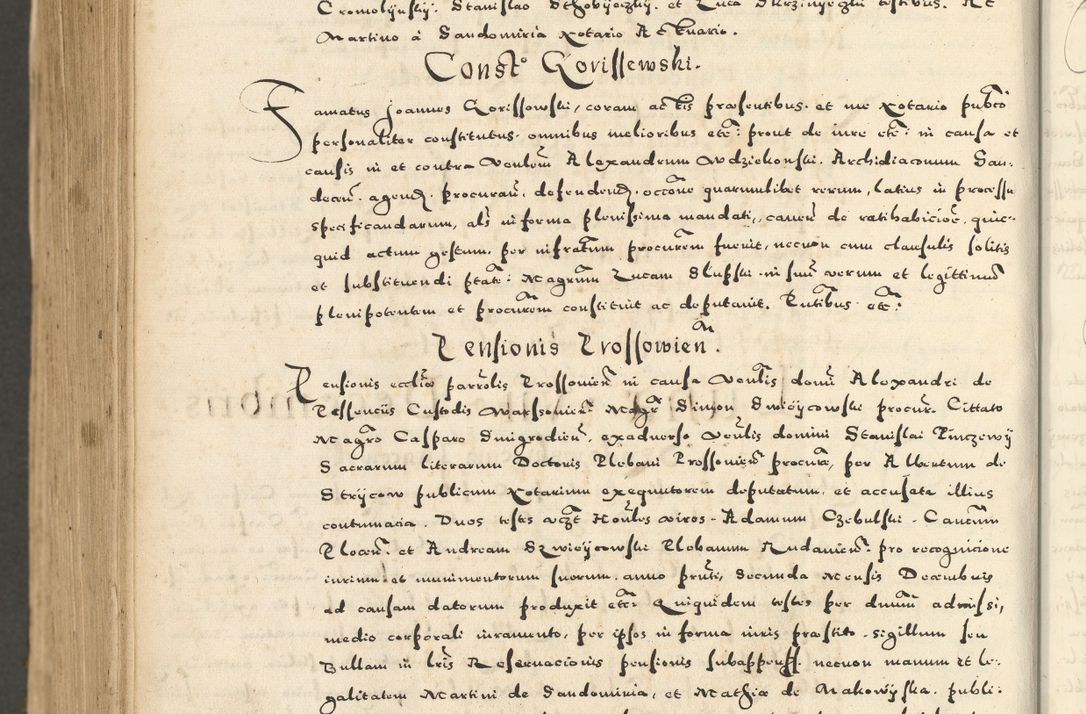 Martino à Sandomiria Notario Actuario.
Const. Gorissewski.
Famatus Joannes Gorissowski, coram actis præsentibus et me Notario publico
personaliter constitutus, omnibus melioribus etc: prout de iure etc: in causa et
causis in et contra Venlem Alexandrum Wdziekonski. Archidiaconum San-
decen. agend. procuran. defendend. occone quarumlibet rerum, latius in processu
specificandarum, als in forma plenissima mandati, caven de ratihabicioe, quic-
quid actum gestum, per infratum procurem fuerit, necnon cum clausulis solitis
et substituendi ptate: Magrum Lucam Slupski in suum verum et legittimum
plenipotentem et procurem constituit ac deputavit. Putibus etc:
Pensionis Prossowien.
Pensionis ecclie parrolis Prossonien in causa Venlis domi Alexandri de
Pessenciis Custodis Warssonien: Magr Simon Swiéycowski procur. Cittato
Magro Casparo Smigrodien, exadverso Venlis domini Stanislai Pinczewij
Sacrarum literarum Doctoris Plebani Prossonien procure, per Albertum de
Stryicow publicum Notarium exequutorem deputatum, et accusata illius
contumacia. Duos testes vczt Honles viros Adamum Czebulski Canum
Plocen. et Andream Dzwieýcowski Plebanum Rudanien. pro recognicione
iurium et munimentorum suorum, anno pruti, Secunda Mensis Decembris
ad causam datorum produxit etc: Quiquidem testes per dnum admissi,
medio corporali iuramento, per ipsos in forma iuris præstito. sigillum seu
Bullam in lris Reservacionis pensionis subappens. necnon manum et le-
galitatem Martini de Sandomiria, et Mathiæ de Makowýska. publi-